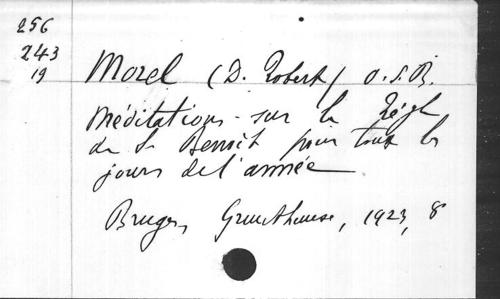 256
243
19
Morel (D. Robert) O.S.B.
Méditations sur la Règle
de S. Benoît pour tous les
jours de l'année
Bruges, Gruuthuuse, 1923, 8